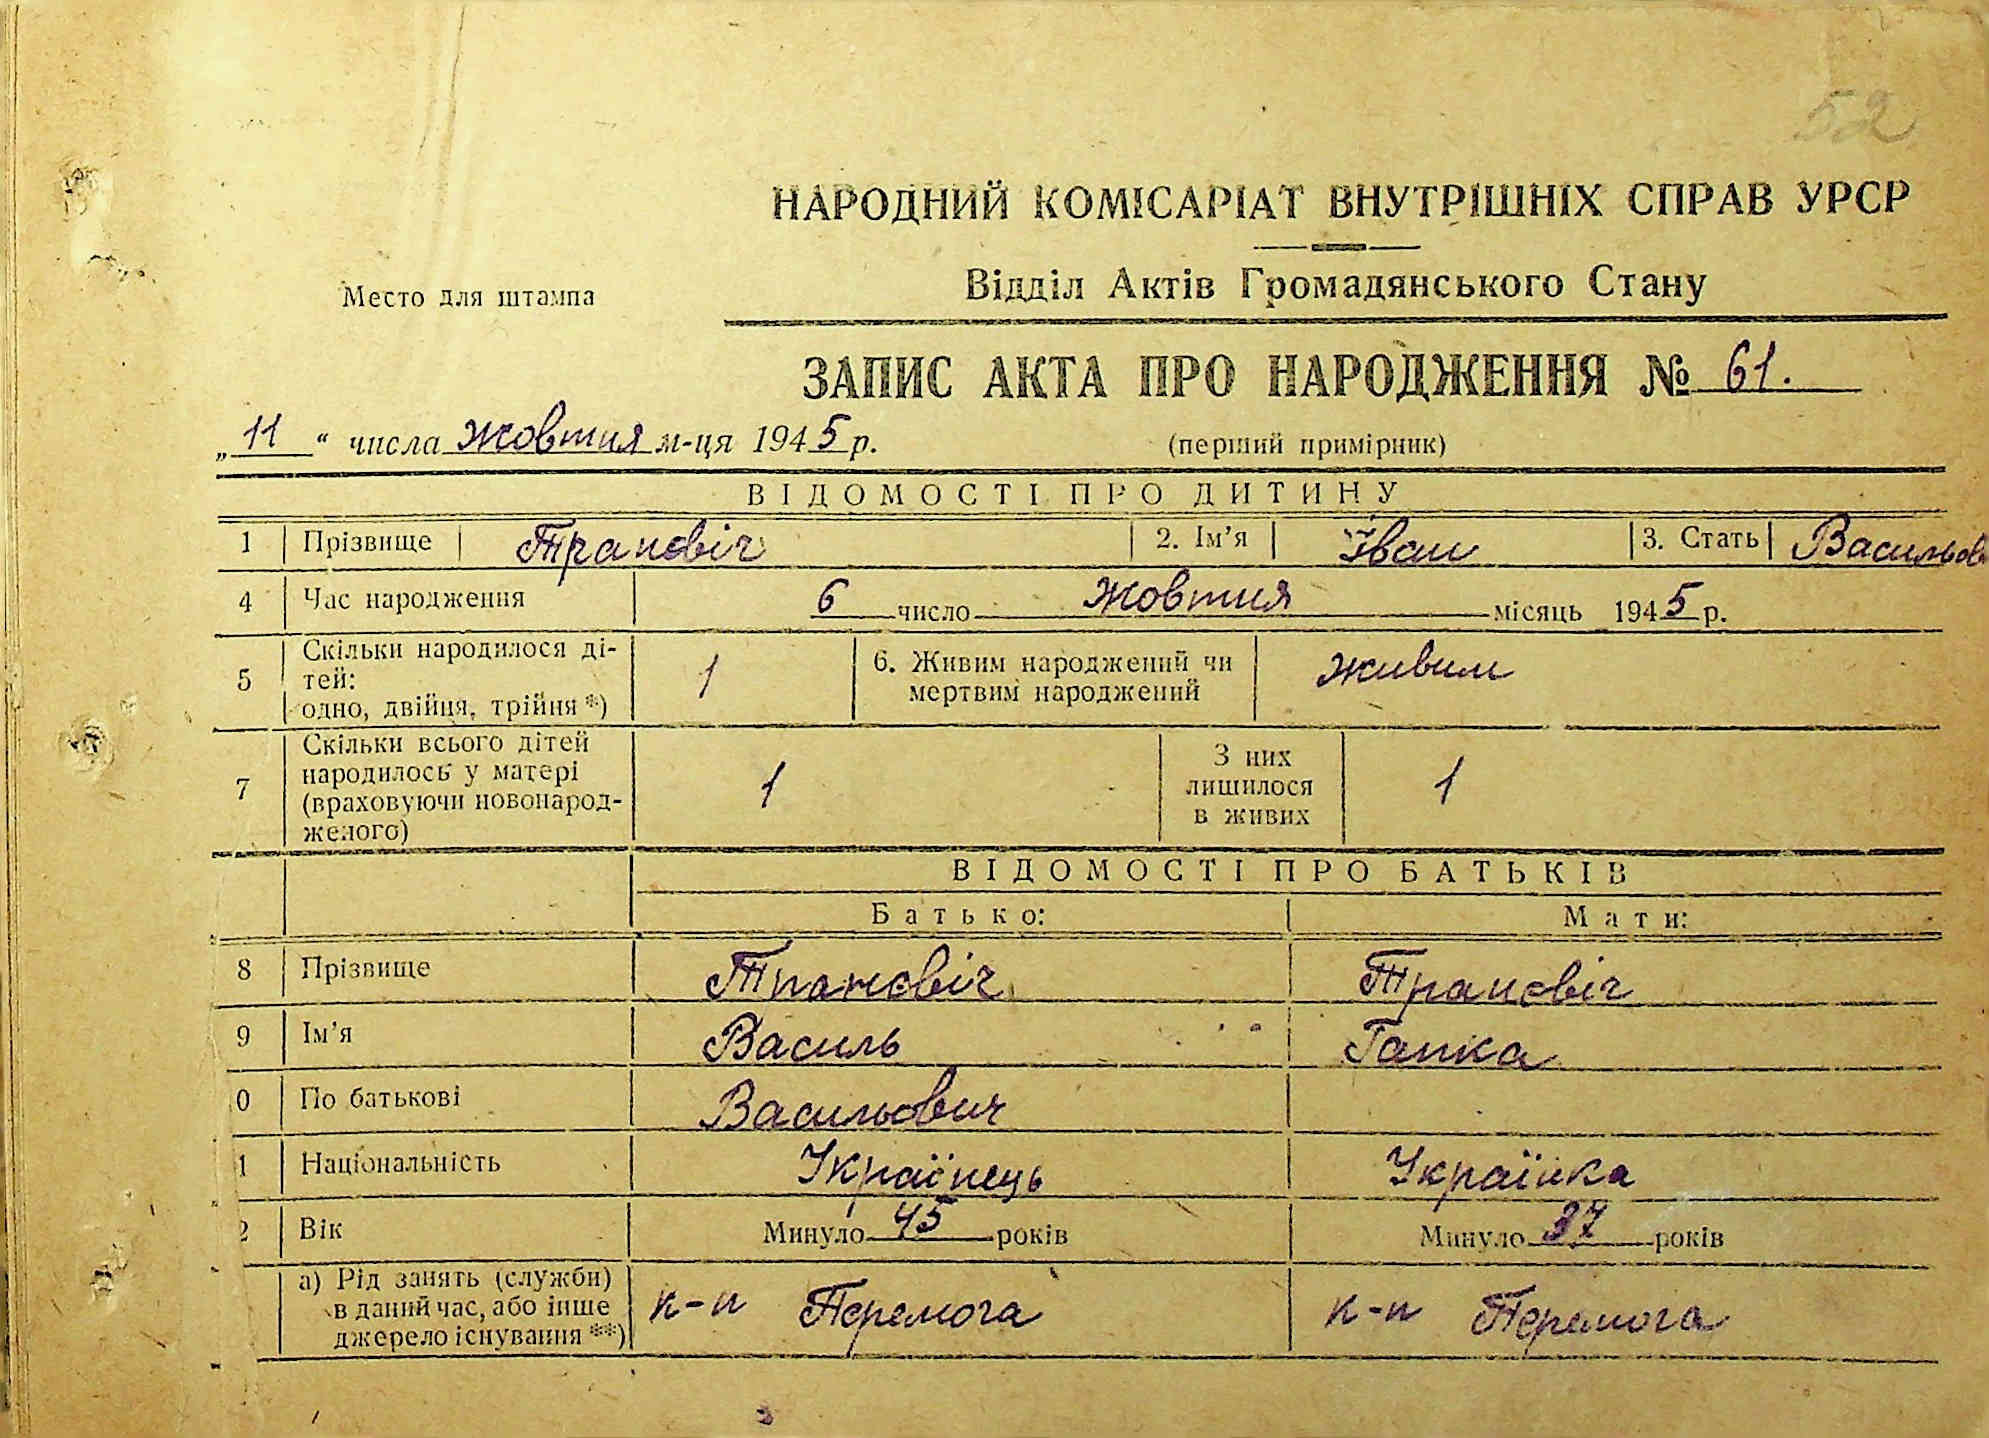 52
НАРОДНИЙ КОМІСАРІАТ ВНУТРІШНІХ СПРАВ УРСР
Место для штампа
Відділ Актів Громадянського Стану
ЗАПИС АКТА ПРО НАРОДЖЕННЯ № 61.
„11“ числа Жовтня м-ця 1945 р.
(перший примірник)
ВІДОМОСТІ ПРО ДИТИНУ
1 Прізвище Трапєвіч 2. Ім'я Іван 3. Стать Васильов
4 Час народження 6 число Жовтня місяць 1945 р.
5 Скільки народилося ді-
тей:
одно, двійця, трійня *) 1
6. Живим народжений чи
мертвим народжений живим
7 Скільки всього дітей
народилось у матері
(враховуючи новонарод-
желого) 1
З них
лишилося
в живих 1
ВІДОМОСТІ ПРО БАТЬКІВ
Батько: Мати:
8 Прізвище Трапєвіч Трапєвіч
9 Ім'я Василь Гапка
0 По батькові Васильович
1 Національність Українець Українка
2 Вік Минуло 45 років Минуло 37 років
а) Рід занять (служби)
в даний час, або інше
джерело існування **)
к-п Перемога к-п Перемога